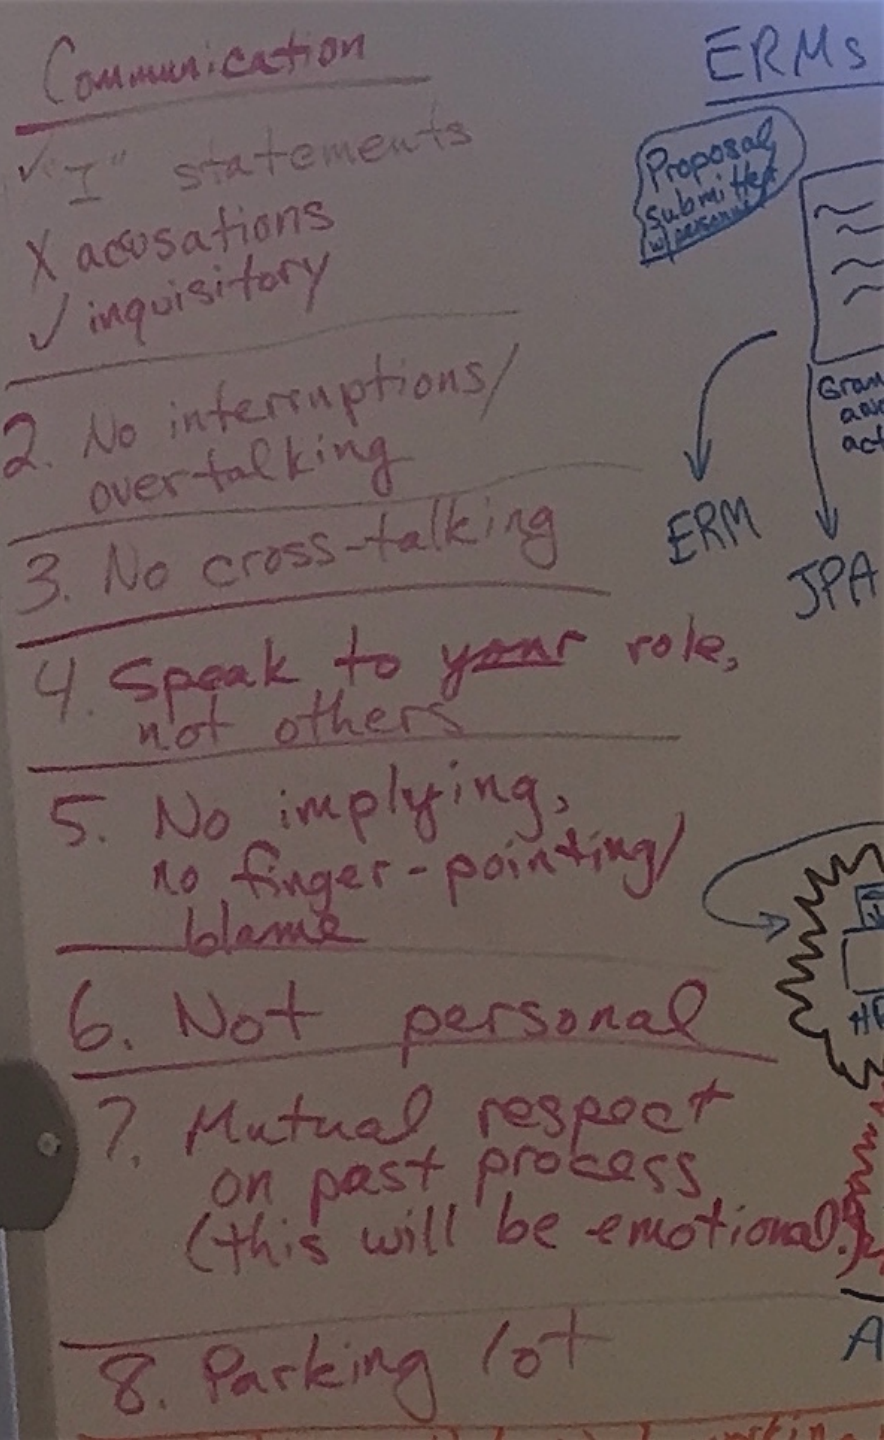 Communication
✓ "I" statements
X accusations
✓ inquisitory
2. No interruptions/
overtalking
3. No cross-talking
4. Speak to your role,
not others
5. No implying,
no finger-pointing/
blame
6. Not personal
7. Mutual respect
on past process
(this will be emotional.)
8. Parking lot
ERMs
Proposal
submitted
w/
ERM
JPA
A